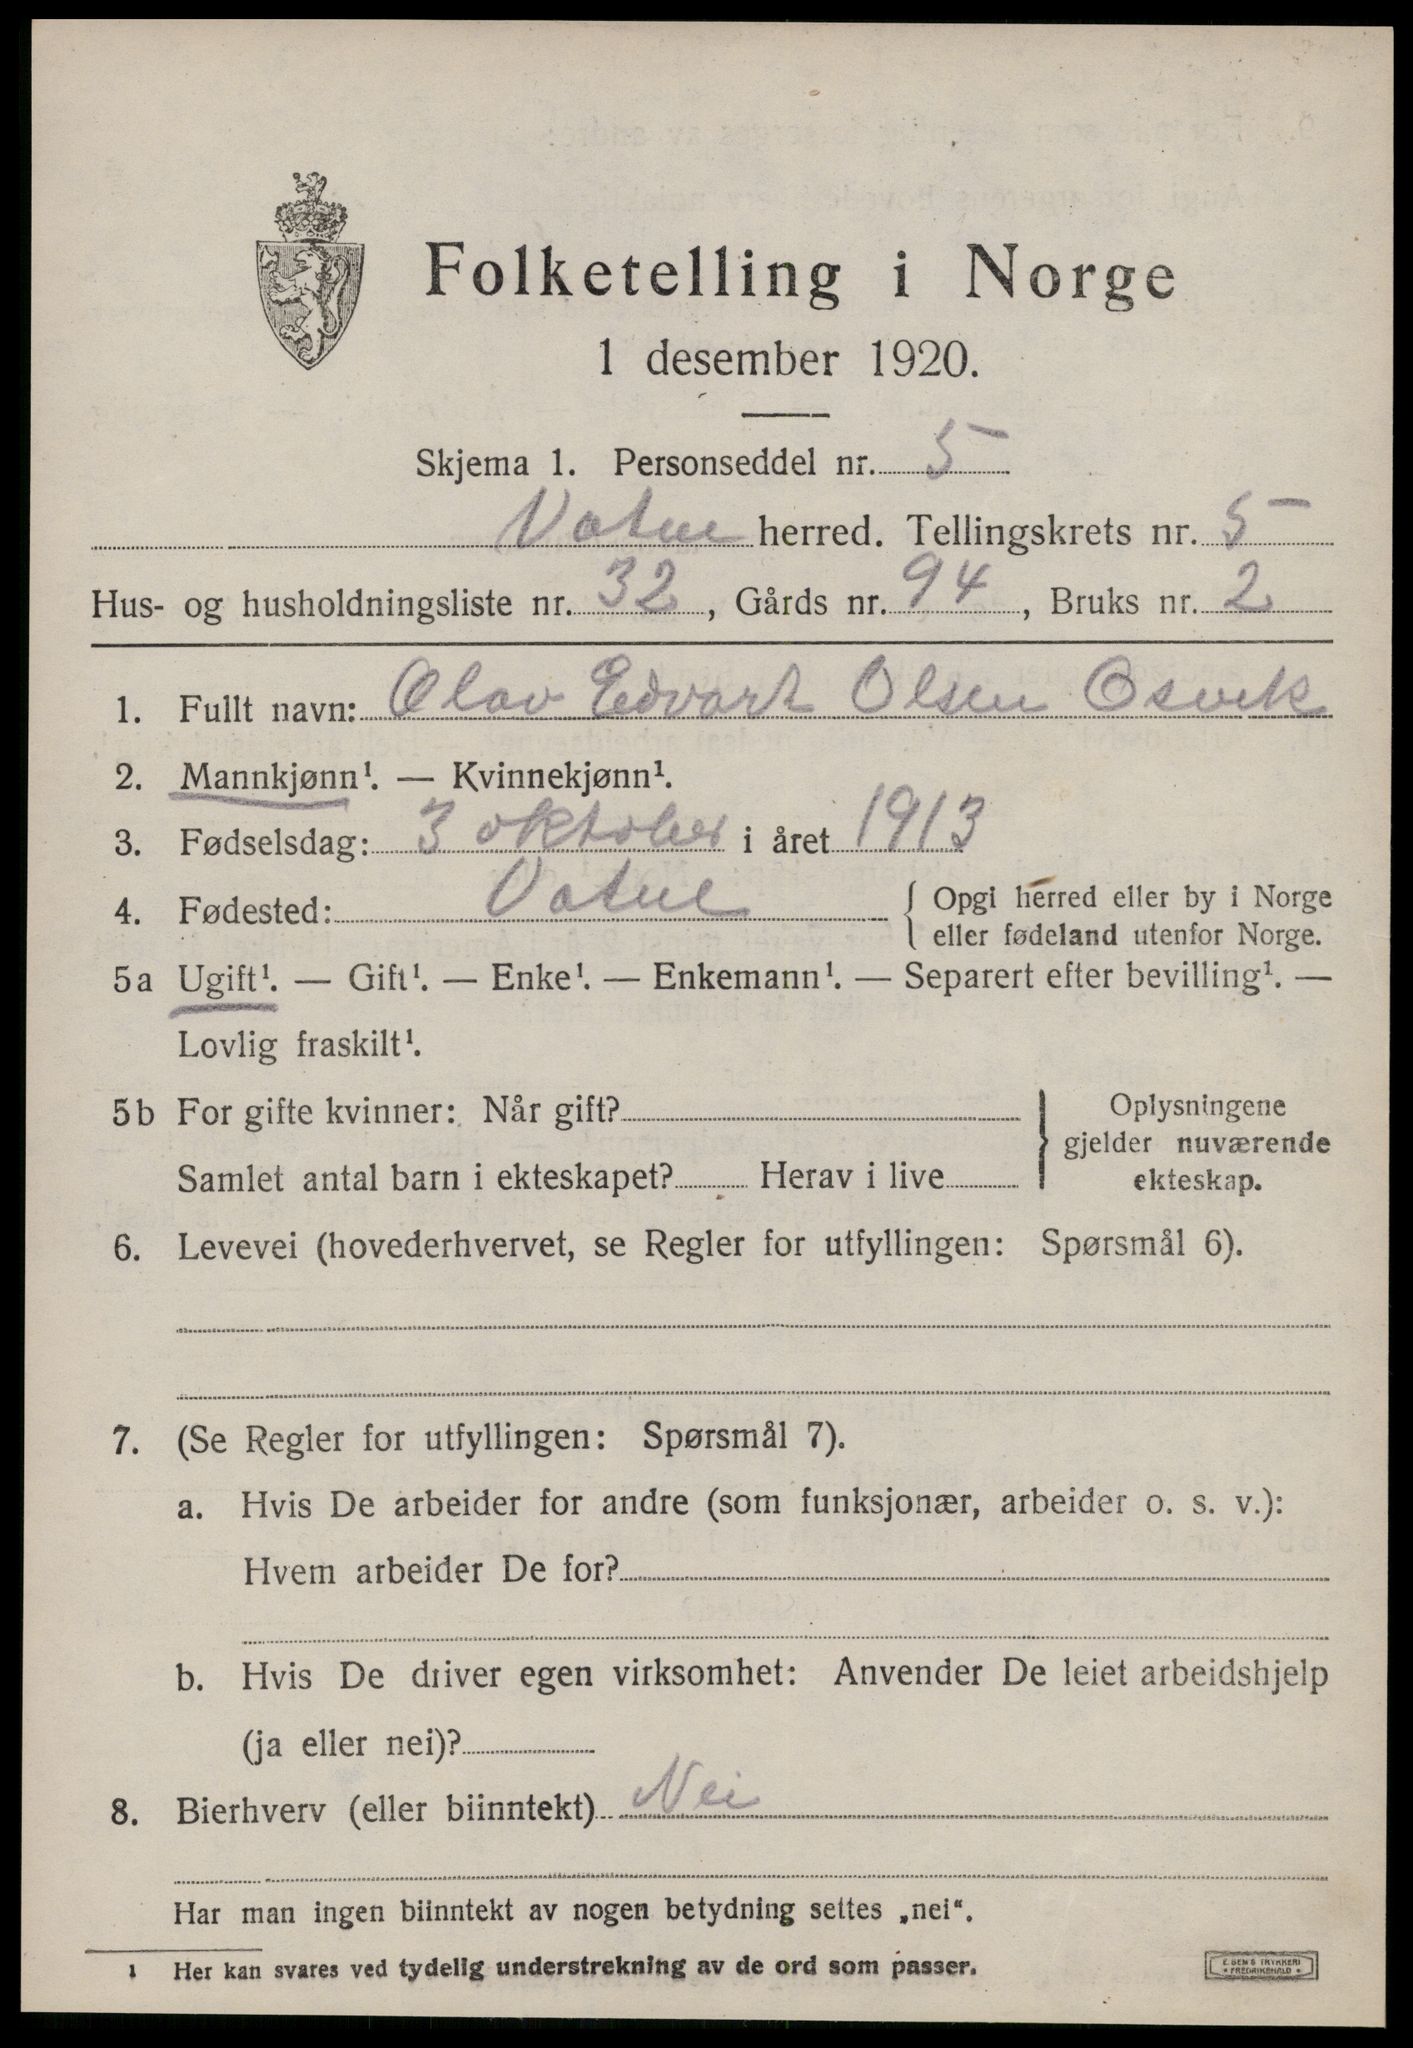 Folketelling i Norge
1 desember 1920.
Skjema 1. Personseddel nr. 5
Vatne herred. Tellingskrets nr. 5
Hus- og husholdningsliste nr. 32, Gårds nr. 94, Bruks nr. 2
1. Fullt navn: Olav Edvart Olsen Osvik
2. Mannkjønn¹. — Kvinnekjønn¹.
3. Fødselsdag: 3 oktober i året 1913
4. Fødested: Vatne { Opgi herred eller by i Norge
eller fødeland utenfor Norge.
5a Ugift¹. — Gift¹. — Enke¹. — Enkemann¹. — Separert efter bevilling¹. —
Lovlig fraskilt¹.
5b For gifte kvinner: Når gift?
Samlet antal barn i ekteskapet? Herav i live
} Oplysningene
gjelder nuværende
ekteskap.
6. Levevei (hovederhvervet, se Regler for utfyllingen: Spørsmål 6).
7. (Se Regler for utfyllingen: Spørsmål 7).
a. Hvis De arbeider for andre (som funksjonær, arbeider o. s. v.):
Hvem arbeider De for?
b. Hvis De driver egen virksomhet: Anvender De leiet arbeidshjelp
(ja eller nei)?
8. Bierhverv (eller biinntekt) Nei
Har man ingen biinntekt av nogen betydning settes „nei“.
1 Her kan svares ved tydelig understrekning av de ord som passer.
E. SEMS TRYKKERI
* FREDRIKSHALD *